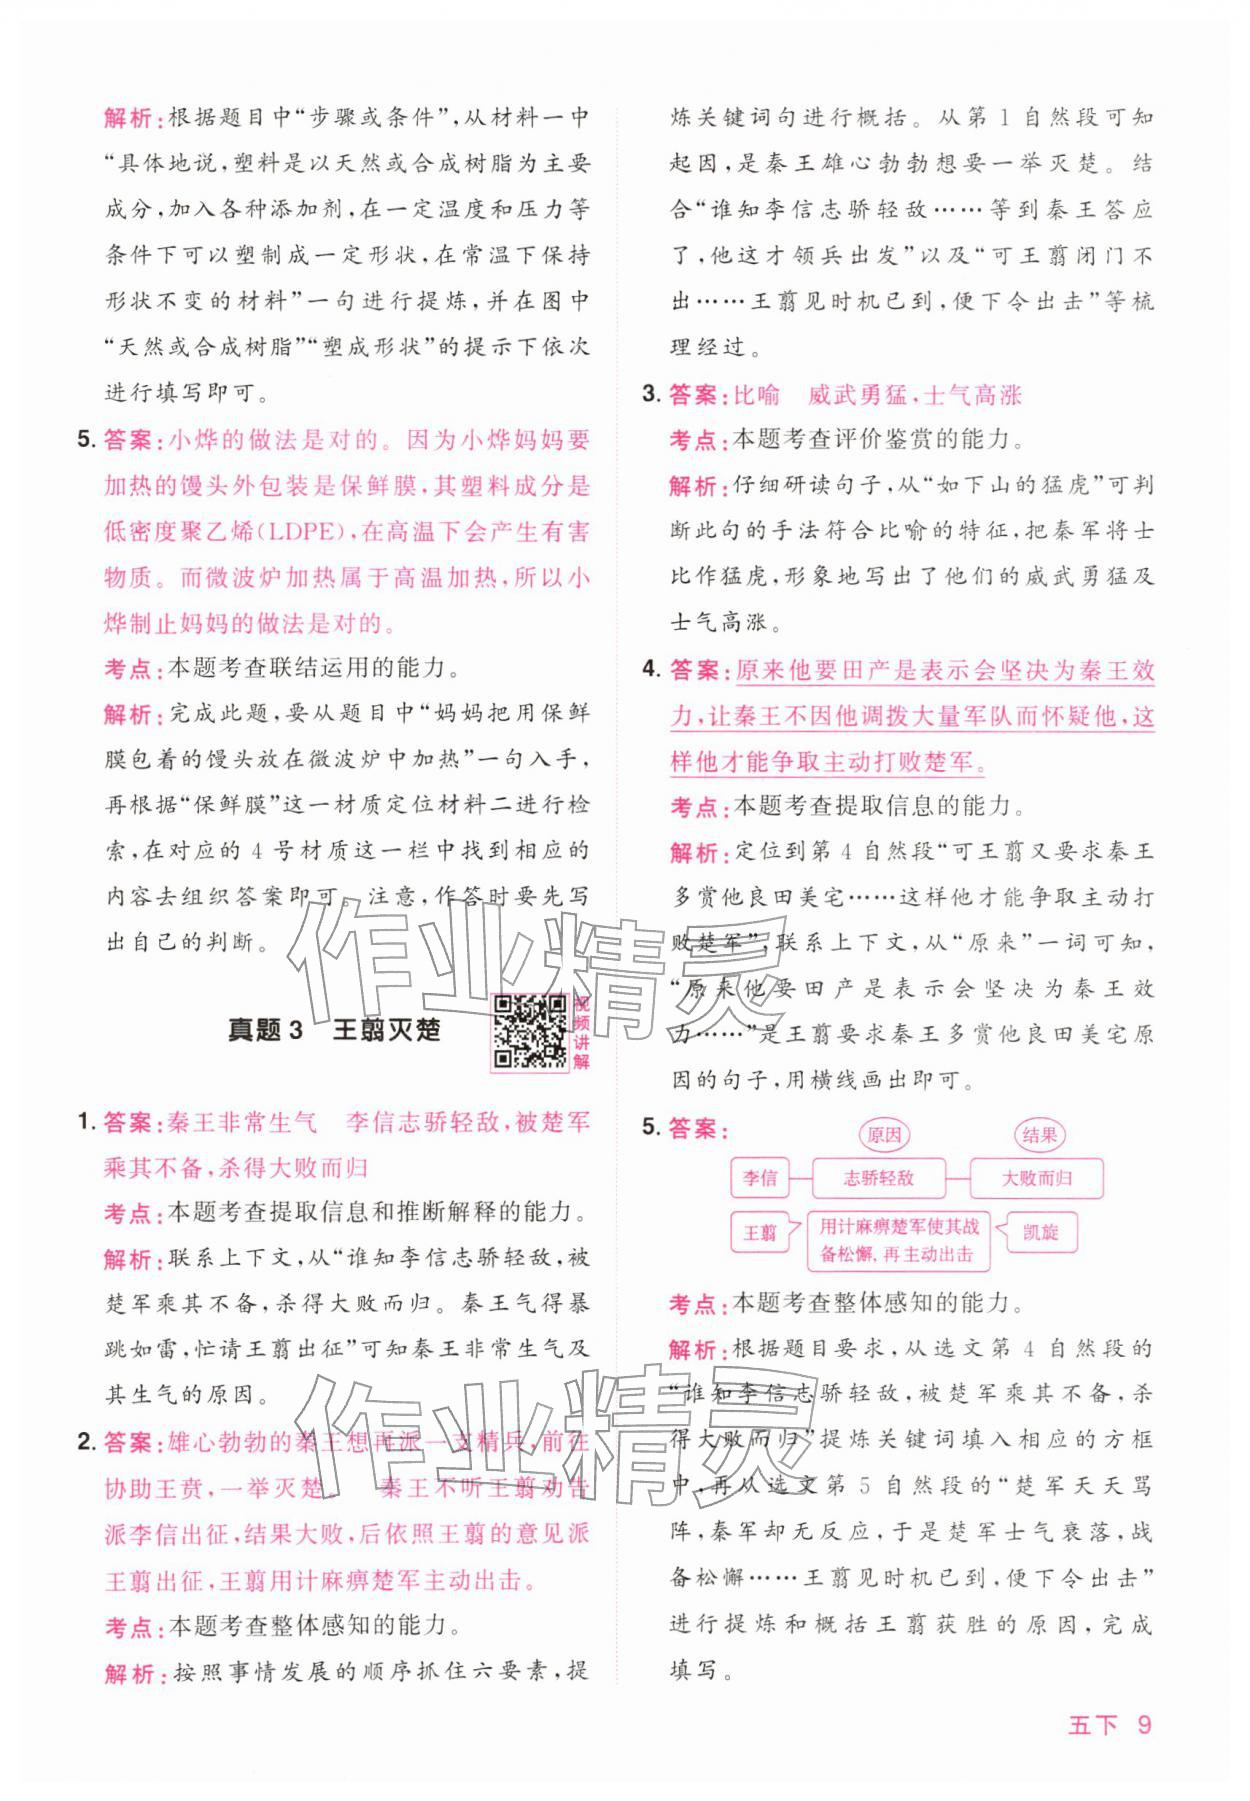 解析:根据题目中“步骤或条件”,从材料一中
“具体地说,塑料是以天然或合成树脂为主要
成分,加入各种添加剂,在一定温度和压力等
条件下可以塑制成一定形状,在常温下保持
形状不变的材料”一句进行提炼,并在图中
“天然或合成树脂”“塑成形状”的提示下依次
进行填写即可。
5. 答案:小烨的做法是对的。因为小烨妈妈要
加热的馒头外包装是保鲜膜,其塑料成分是
低密度聚乙烯(LDPE),在高温下会产生有害
物质。而微波炉加热属于高温加热,所以小
烨制止妈妈的做法是对的。
考点:本题考查联结运用的能力。
解析:完成此题,要从题目中“妈妈把用保鲜
膜包着的馒头放在微波炉中加热”一句入手,
再根据“保鲜膜”这一材质定位材料二进行检
索,在对应的 4 号材质这一栏中找到相应的
内容去组织答案即可。注意,作答时要先写
出自己的判断。
真题 3 王翦灭楚
视频讲解
1. 答案:秦王非常生气 李信志骄轻敌,被楚军
乘其不备,杀得大败而归
考点:本题考查提取信息和推断解释的能力。
解析:联系上下文,从“谁知李信志骄轻敌,被
楚军乘其不备,杀得大败而归。秦王气得暴
跳如雷,忙请王翦出征”可知秦王非常生气及
其生气的原因。
2. 答案:雄心勃勃的秦王想再派一支精兵,前往
协助王贲,一举灭楚。 秦王不听王翦劝告
派李信出征,结果大败,后依照王翦的意见派
王翦出征,王翦用计麻痹楚军主动出击。
考点:本题考查整体感知的能力。
解析:按照事情发展的顺序抓住六要素,提
炼关键词句进行概括。从第 1 自然段可知
起因,是秦王雄心勃勃想要一举灭楚。结
合“谁知李信志骄轻敌……等到秦王答应
了,他这才领兵出发”以及“可王翦闭门不
出……王翦见时机已到,便下令出击”等梳
理经过。
3. 答案:比喻 威武勇猛,士气高涨
考点:本题考查评价鉴赏的能力。
解析:仔细研读句子,从“如下山的猛虎”可判
断此句的手法符合比喻的特征,把秦军将士
比作猛虎,形象地写出了他们的威武勇猛及
士气高涨。
4. 答案:原来他要田产是表示会坚决为秦王效
力,让秦王不因他调拨大量军队而怀疑他,这
样他才能争取主动打败楚军。
考点:本题考查提取信息的能力。
解析:定位到第 4 自然段“可王翦又要求秦王
多赏他良田美宅……这样他才能争取主动打
败楚军”,联系上下文,从“原来”一词可知,
“原来他要田产是表示会坚决为秦王效
力……”是王翦要求秦王多赏他良田美宅原
因的句子,用横线画出即可。
5. 答案:
原因 结果
李信 志骄轻敌 大败而归
王翦 用计麻痹楚军使其战 凯旋
备松懈,再主动出击
考点:本题考查整体感知的能力。
解析:根据题目要求,从选文第 4 自然段的
“谁知李信志骄轻敌,被楚军乘其不备,杀
得大败而归”提炼关键词填入相应的方框
中,再从选文第 5 自然段的“楚军天天骂
阵,秦军却无反应,于是楚军士气衰落,战
备松懈……王翦见时机已到,便下令出击”
进行提炼和概括王翦获胜的原因,完成
填写。
作业精灵
作业精灵
五下 9